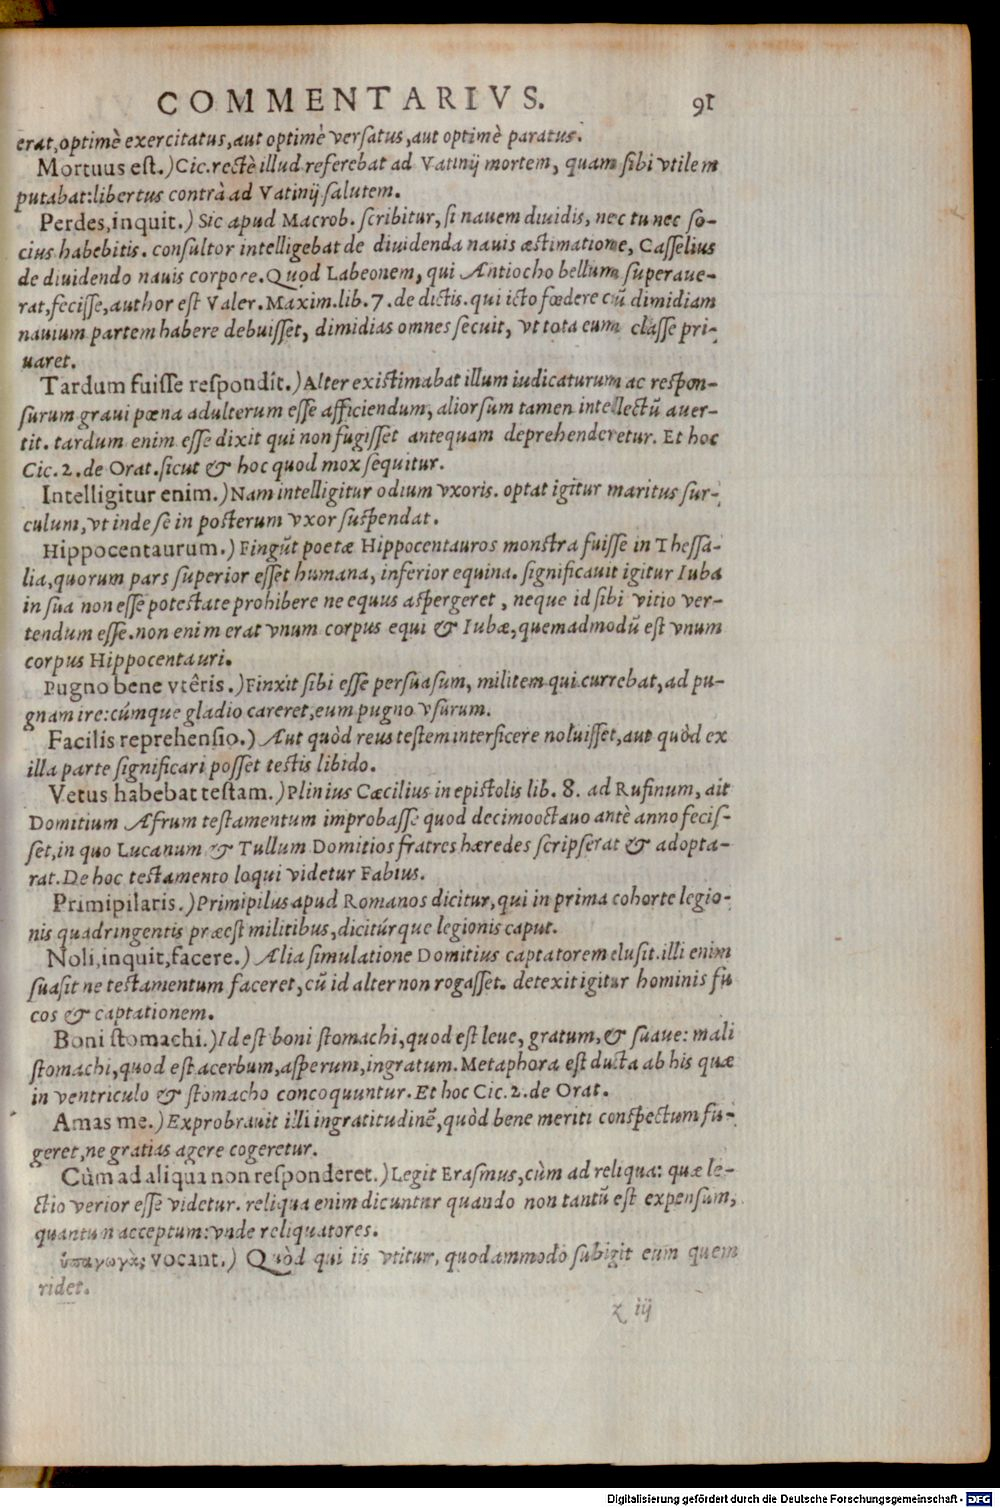 COMMENTARIVS. 91
erat,optimè exercitatus,aut optimè versatus,aut optimè paratus.
Mortuus est.) Cic.rectè illud referebat ad Vatinij mortem, quam sibi vtilem
putabat:libertus contrà ad Vatinij salutem.
Perdes,inquit.) Sic apud Macrob. scribitur, si nauem diuidis, nec tu nec so-
cius habebitis. consultor intelligebat de diuidenda nauis æstimatione, Casselius
de diuidendo nauis corpore.Quod Labeonem, qui Antiocho bellum superaue-
rat,fecisse,author est Valer.Maxim.lib.7.de dictis.qui icto fœdere cū dimidiam
nauium partem habere debuisset, dimidias omnes secuit, vt tota eum classe pri-
uaret.
Tardum fuisse respondit.) Alter existimabat illum iudicaturum ac respon-
surum graui pœna adulterum esse afficiendum, aliorsum tamen intellectū auer-
tit. tardum enim esse dixit qui non fugisset antequam deprehenderetur. Et hoc
Cic.2.de Orat.sicut & hoc quod mox sequitur.
Intelligitur enim.) Nam intelligitur odium vxoris. optat igitur maritus sur-
culum,vt inde se in posterum vxor suspendat.
Hippocentaurum.) Fingūt poetæ Hippocentauros monstra fuisse in Thessa-
lia,quorum pars superior esset humana, inferior equina. significauit igitur Iuba
in sua non esse potestate prohibere ne equus aspergeret, neque id sibi vitio ver-
tendum esse.non enim erat vnum corpus equi & Iubæ,quemadmodū est vnum
corpus Hippocentauri.
Pugno bene vtêris.) Finxit sibi esse persuasum, militem qui currebat, ad pu-
gnam ire:cúmque gladio careret,eum pugno vsurum.
Facilis reprehensio.) Aut quòd reus testem interficere noluisset,aut quòd ex
illa parte significari posset testis libido.
Vetus habebat testam.) Plinius Cæcilius in epistolis lib. 8. ad Rufinum, ait
Domitium Afrum testamentum improbasse quod decimooctauo antè anno fecis-
set,in quo Lucanum & Tullum Domitios fratres hæredes scripserat & adopta-
rat.De hoc testamento loqui videtur Fabius.
Primipilaris.) Primipilus apud Romanos dicitur, qui in prima cohorte legio-
nis quadringentis præest militibus,dicitúrque legionis caput.
Noli,inquit,facere.) Alia simulatione Domitius captatorem elusit.illi enim
suasit ne testamentum faceret,cū id alter non rogasset. detexit igitur hominis fu
cos & captationem.
Boni stomachi.) Id est boni stomachi,quod est leue, gratum,& suaue: mali
stomachi,quod est acerbum,asperum,ingratum.Metaphora est ducta ab his quæ
in ventriculo & stomacho concoquuntur.Et hoc Cic.2.de Orat.
Amas me.) Exprobrauit illi ingratitudinē,quòd bene meriti conspectum fu-
geret,ne gratias agere cogeretur.
Cùm ad aliqua non responderet.) Legit Erasmus,cùm ad reliqua: quæ le-
ctio verior esse videtur. reliqua enim dicuntur quando non tantū est expensum,
quantum acceptum:vnde reliquatores.
ὑπαγωγὰς vocant.) Quòd qui iis vtitur, quodammodo subigit eum quem
ridet.
z iij
Digitalisierung gefördert durch die Deutsche Forschungsgemeinschaft - DFG